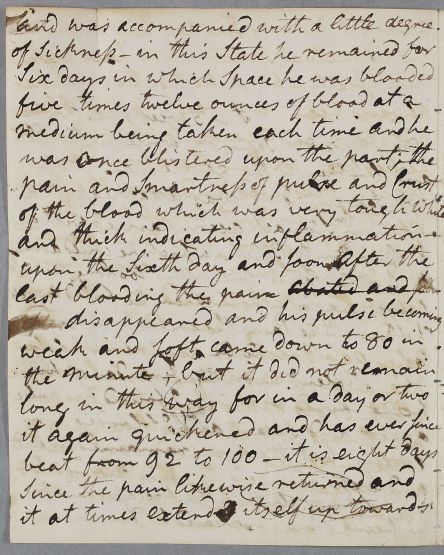 and was accompanied with a little degree
of Sickness - in this State he remained for
Six days in which Space he was blooded
five times twelve ounces of blood at a
medium being taken each time and he
was once blistered upon the part, the
pain and Smartness of pulse and Crust
of the blood which was very tough
and thick indicating inflammation -
upon the Sixth day and soon after the
last blooding the pain abated and
disappeared and his pulse becoming
weak and soft came down to 80 in
the minute, but it did not remain
long in this way for in a day or two
it again quickened and has ever since
beat from 92 to 100 - it is eight days
Since the pain likewise returned and
it at times extends itself up towards